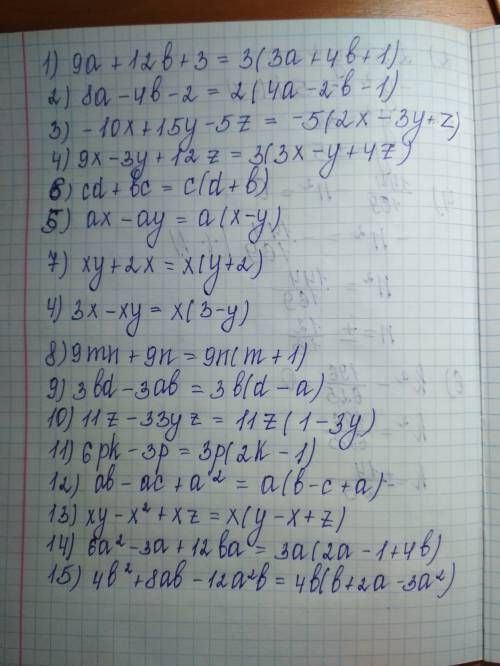 1) 9a + 12b + 3 = 3(3a + 4b + 1)
2) 8a - 4b - 2 = 2(4a - 2b - 1)
3) -10x + 15y - 5z = -5(2x - 3y + z)
4) 9x - 3y + 12z = 3(3x - y + 4z)
6) cd + bc = c(d + b)
5) ax - ay = a(x - y)
7) xy + 2x = x(y + 2)
4) 3x - xy = x(3 - y)
8) 9mn + 9n = 9n(m + 1)
9) 3bd - 3ab = 3b(d - a)
10) 11z - 33yz = 11z(1 - 3y)
11) 6pk - 3p = 3p(2k - 1)
12) ab - ac + a² = a(b - c + a)
13) xy - x² + xz = x(y - x + z)
14) 6a² - 3a + 12ba = 3a(2a - 1 + 4b)
15) 4b² + 8ab - 12a²b = 4b(b + 2a - 3a²)